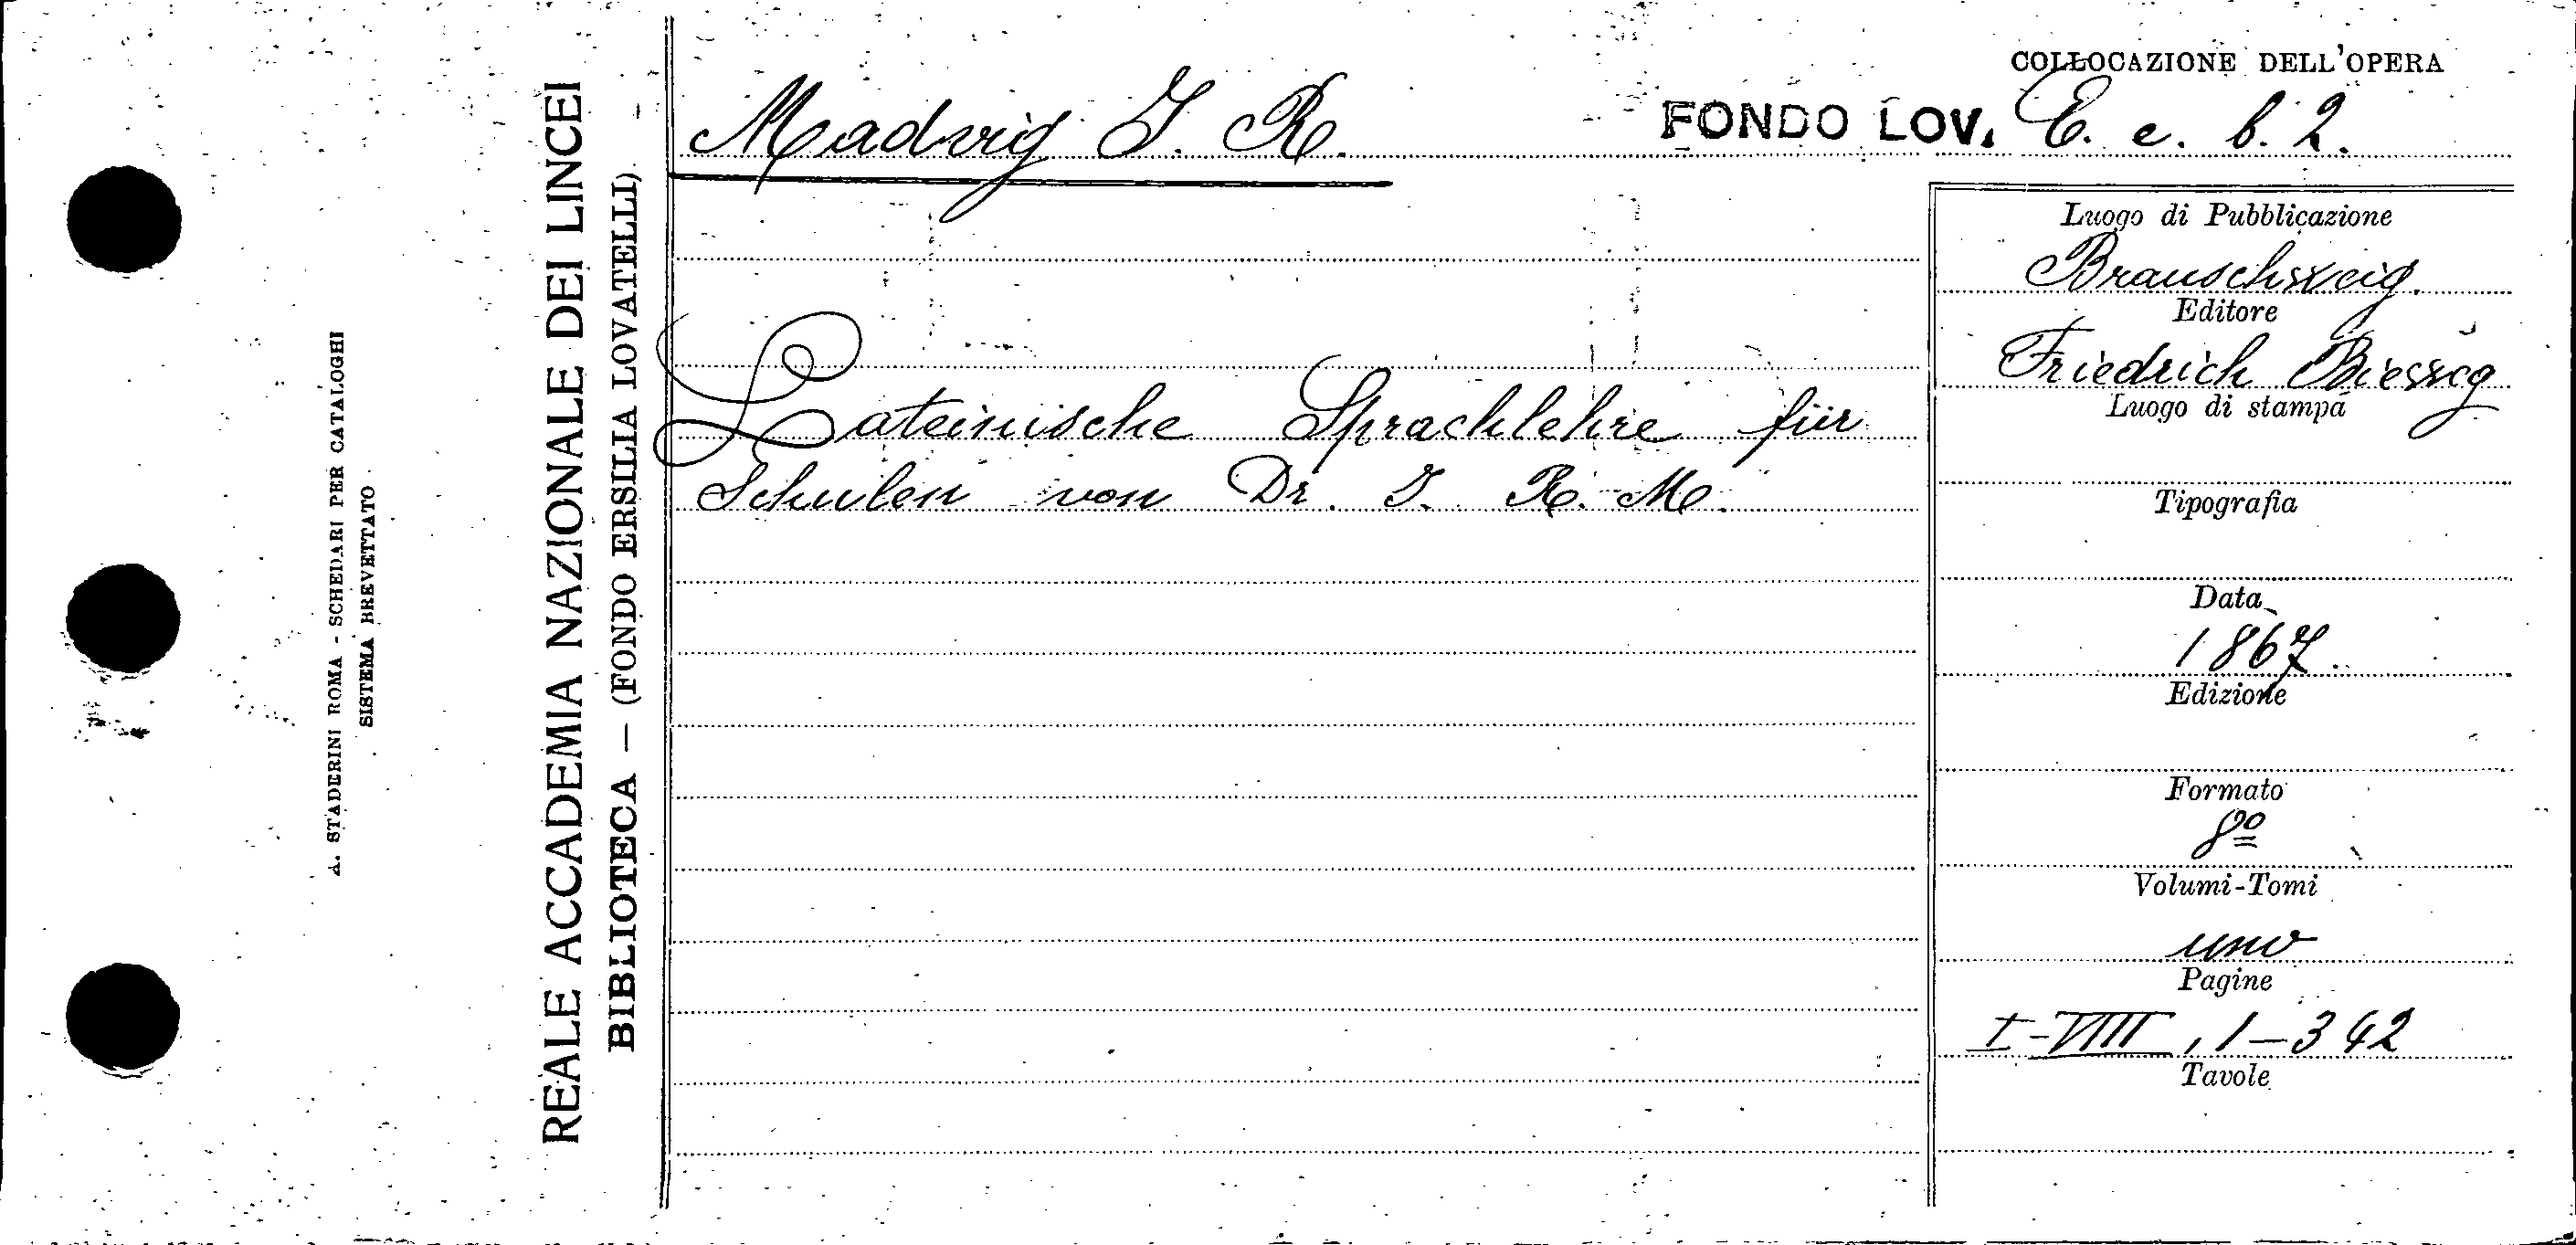 COLLOCAZIONE DELL'OPERA
Madvig J. R.
FONDO LOV. E. c. b. 2.
Luogo di Pubblicazione
Brauschweig.
Editore
Friedrich Biesseg
Luogo di stampa
Lateinische Sprachlehre für
Schulen von Dr. J. R. M.
Tipografia
Data
1867.
Edizione
Formato
8º
Volumi-Tomi
uno
Pagine
I-VIII, 1-342
Tavole
REALE ACCADEMIA NAZIONALE DEI LINCEI
BIBLIOTECA — (FONDO ERSILIA LOVATELLI)
A. STADERINI ROMA - SCHEDARI PER CATALOGHI
SISTEMA BREVETTATO